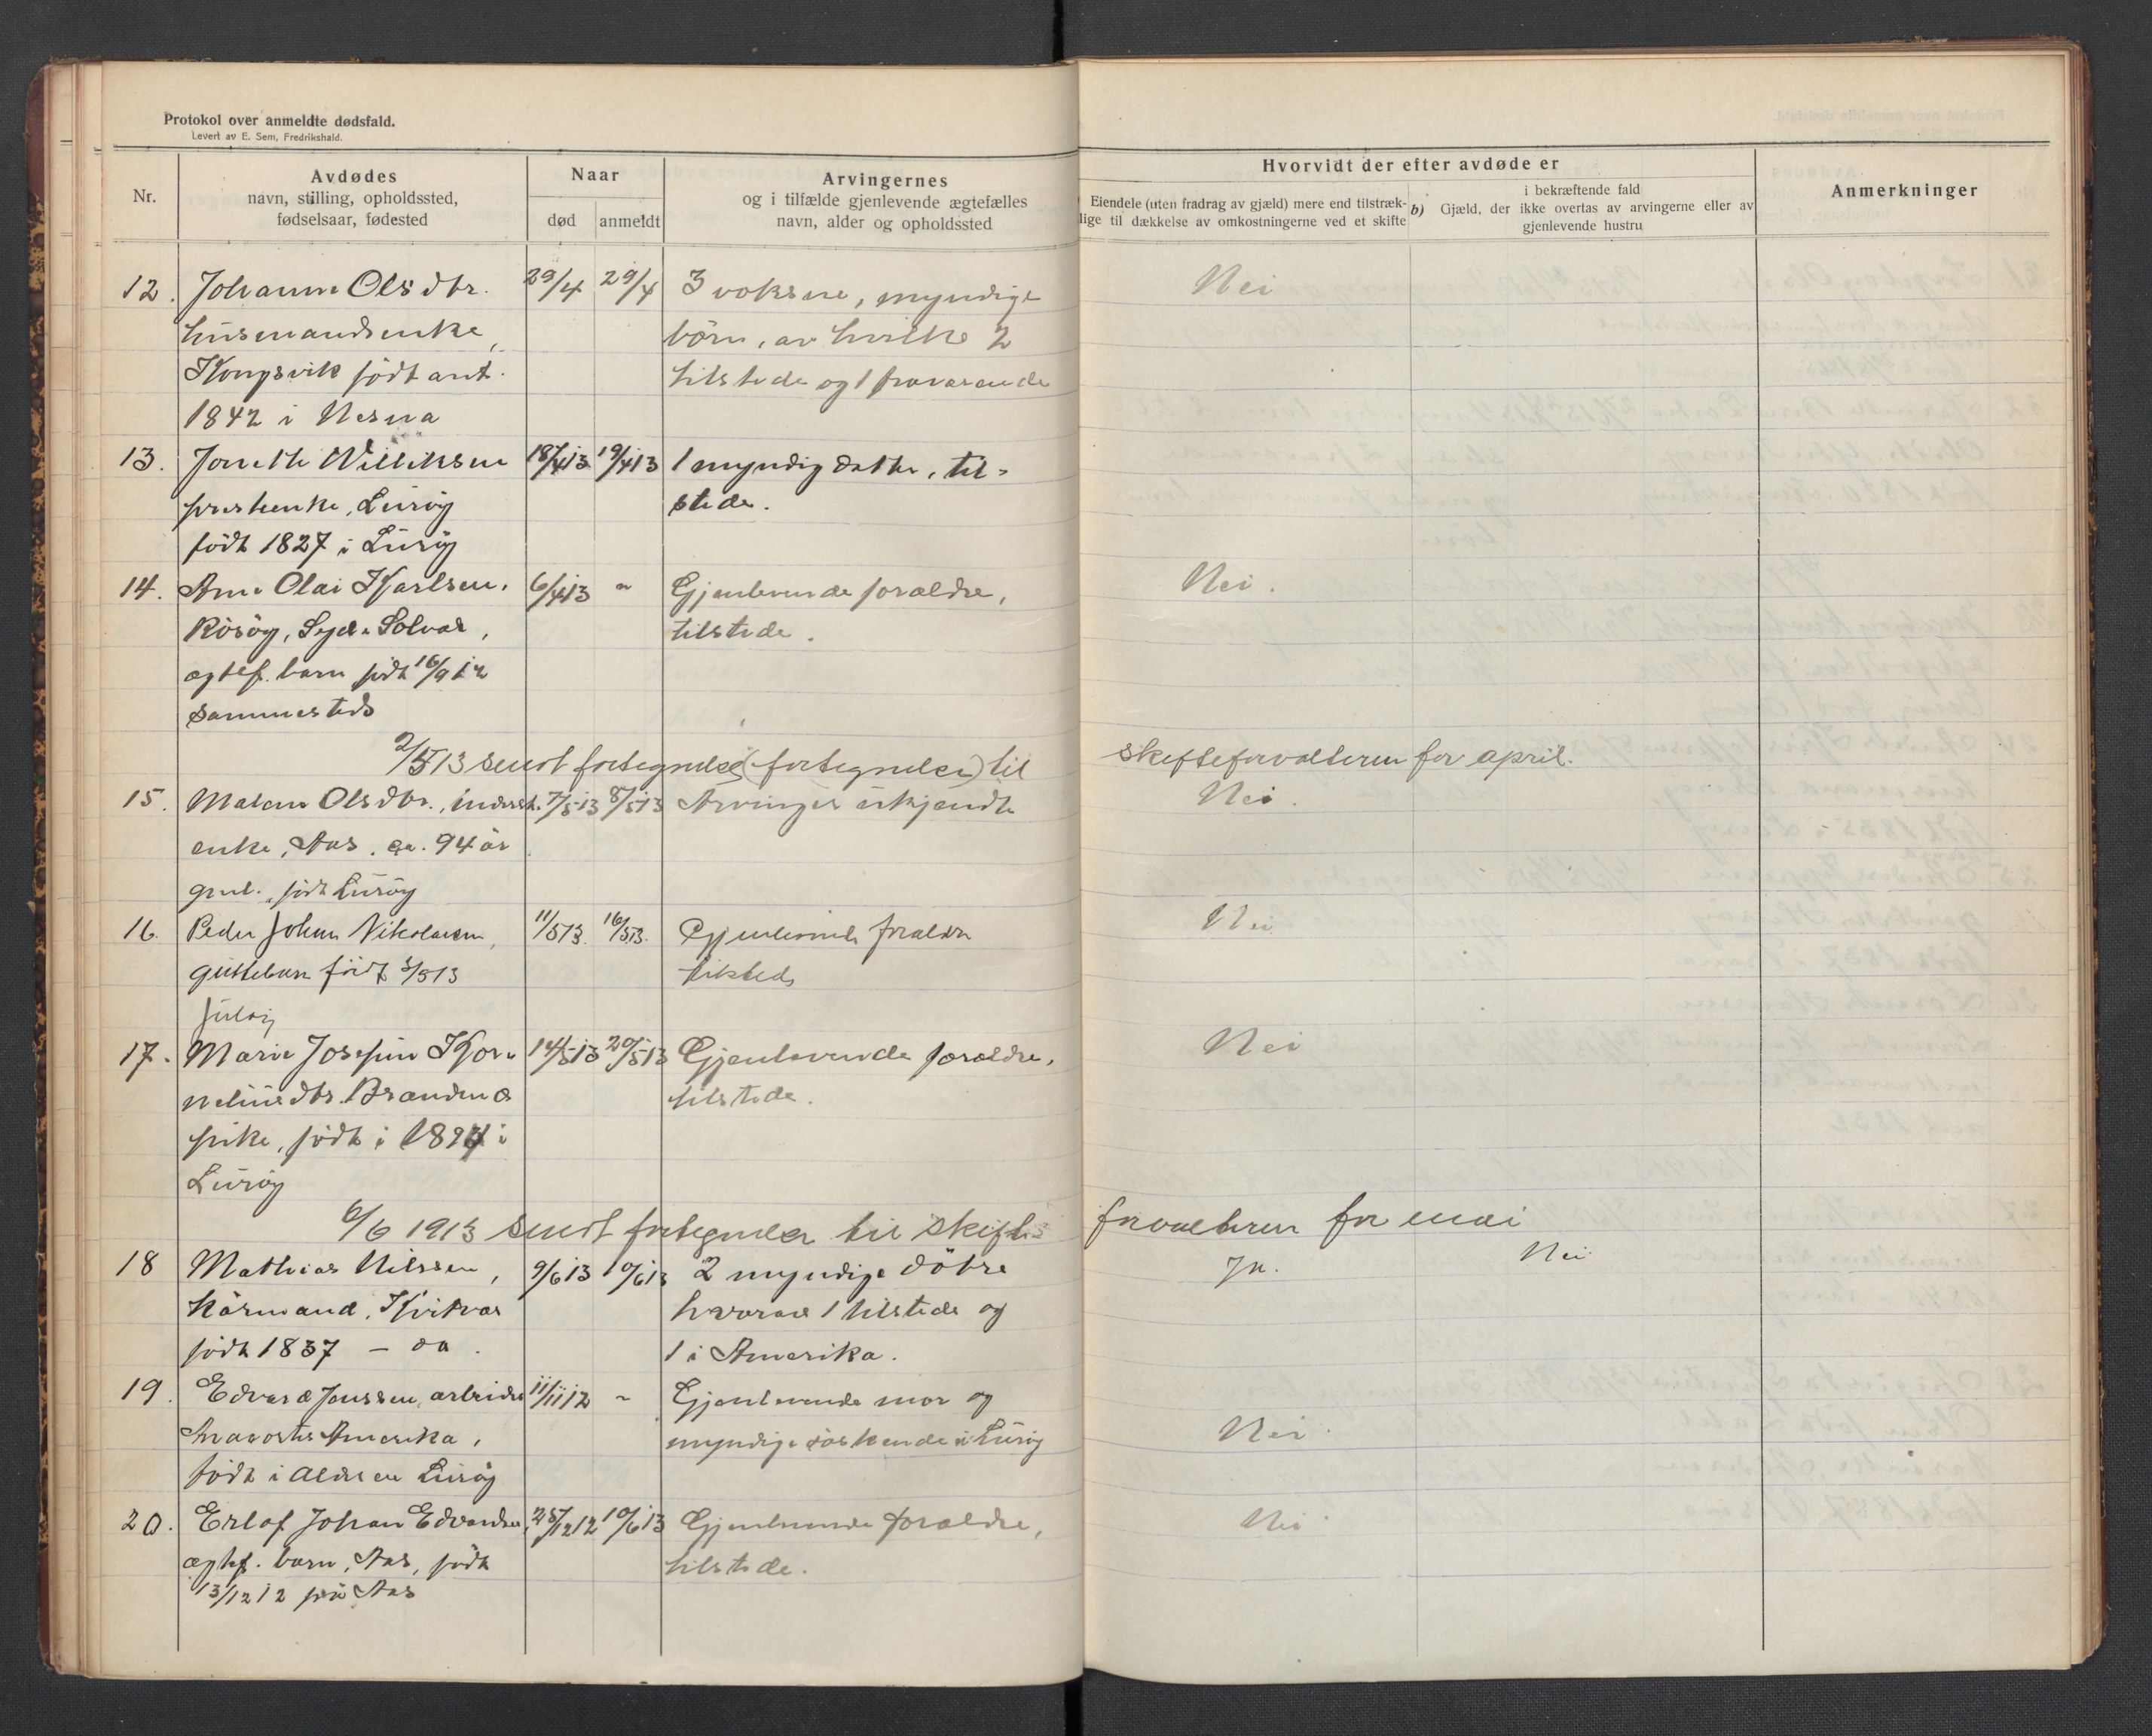 Protokol over anmeldte dødsfald.
Levert av E. Sem, Fredrikshald.
Nr.
Avdødes
navn, stilling, opholdssted,
fødselsaar, fødested
Naar
død
anmeldt
Arvingernes
og i tilfælde gjenlevende ægtefælles
navn, alder og opholdssted
Hvorvidt der efter avdøde er
Eiendele (uten fradrag av gjæld) mere end tilstræk-
lige til dækkelse av omkostningerne ved et skifte
b) i bekræftende fald
Gjæld, der ikke overtas av arvingerne eller av
gjenlevende hustru
Anmerkninger
12. Johanna Olsdtr. 29/4 29/4 3 voksne, myndige Nei
husmandsenke, børn, av hvilke 2
Kongsvik født ant. tilstede og 1 fraværende
1842 i Nesna
13. Jonette Williksen 18/4 13 19/4 13 1 myndig datter, til-
presteenke, Lurøy stede.
født 1827 i Lurøy
14. Arne Olai Karlsen, 6/4 13 " Gjenlevende forældre, Nei.
Solvær, tilstede.
ægtef. barn født 16/9 12
sammesteds
2/5 13 sendt fortegnelse (fortegnelser) til skifteforvalteren for april.
15. Malene Olsdtr., inderst. 7/5 13 8/5 13 Arvinger ukjendte Nei.
enke, Aas, ca. 94 år
gml. født Lurøy
16. Peder Johan Nikolaisen, 11/5 13. 16/5 13. Gjenlevende forældre Nei
guttebarn født 3/5 13 tilsteds
17. Marie Josefine Kor- 14/5 13 20/5 13 Gjenlevende forældre, Nei
neliusdtr. Brandnæs tilstede.
pike, født i 1894 i
Lurøy
6/6 1913 sendt fortegnelse til skifte- forvalteren for mai
18 Mathias Nilssen, 9/6 13 10/6 13 2 myndige døtre Ja. Nei
kårmand, Kvitvær hvorav 1 tilstede og
født 1837 — da. 1 i Amerika.
19. Edvard Jenssen, arbeider 11/11 12 " Gjenlevende mor og
Amerika, myndige søskende i Lurøy Nei
født i Aldersen Lurøy
20. Erlof Johan Edvardsen, 25/12 12 10/6 13 Gjenlevende forældre, Nei
ægtef. barn, Aas, født tilstede.
13/12 12 på Aas